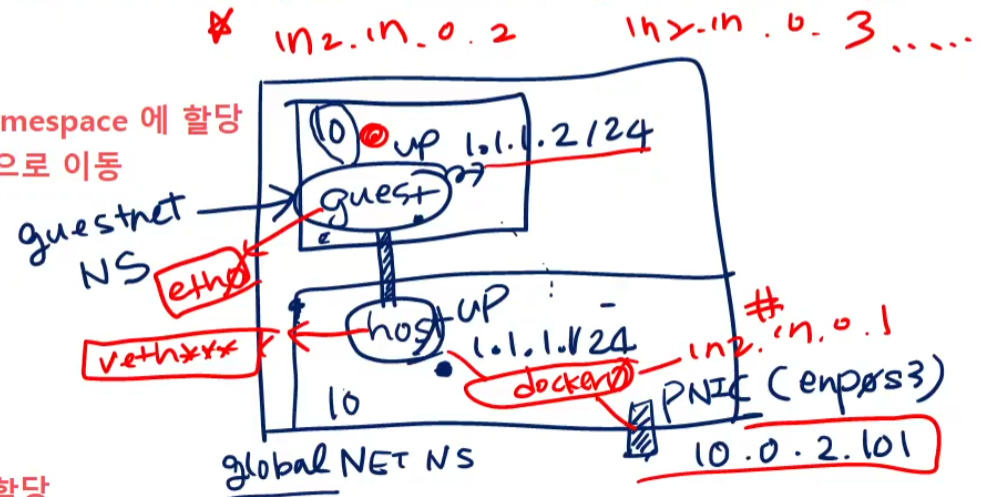 ☆ 172.17.0.2 172.17.0.3.....
mespace 에 할당
으로 이동
lo up 1.1.1.2/24
guest
guestnet
NS
eth0
host up
1.1.1.1/24
veth***
docker0
# 172.17.0.1
lo
PNIC (enp0s3)
10.0.2.101
global NET NS
할당